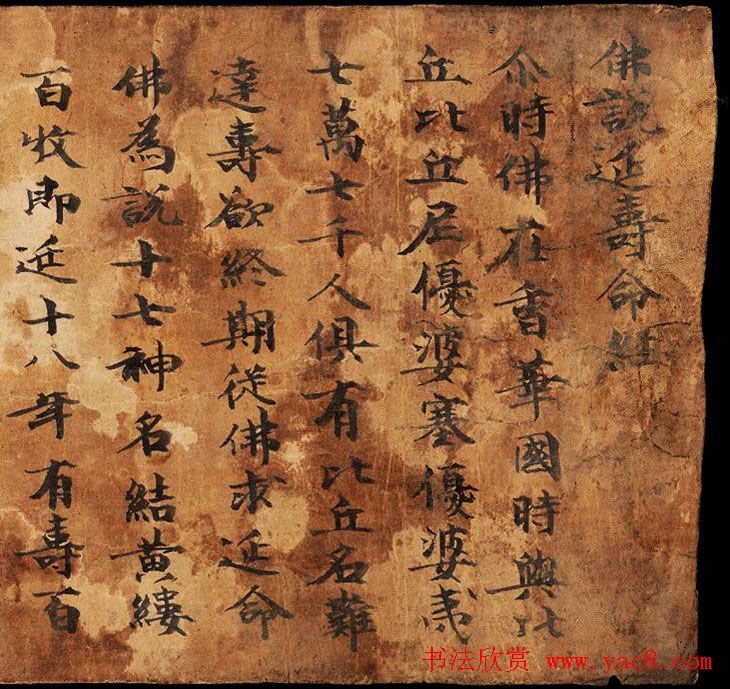 佛說延壽命經
尒時佛在香華國時與比
丘比丘尼優婆塞優婆夷
七萬七千人俱有比丘名難
達壽欲終期從佛求延命
佛為說十七神名結黃縷
百收即延十八年有壽百
书法欣赏 www.yac8.com